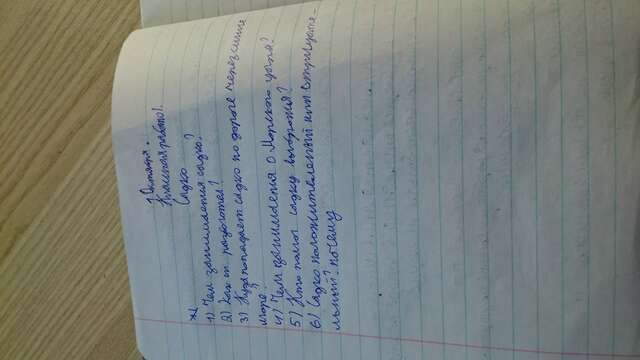 7 Октября.
Классная работа.
Садко
№1
1) Чем занимается садко?
2) Как он разбогател?
3) Куда попадает садко по дороге через синие
море?
4) Чем занимается о Морского царя?
5) Кто помог садку выбратся?
6) Садко положительный или отрицате-
льный? почему